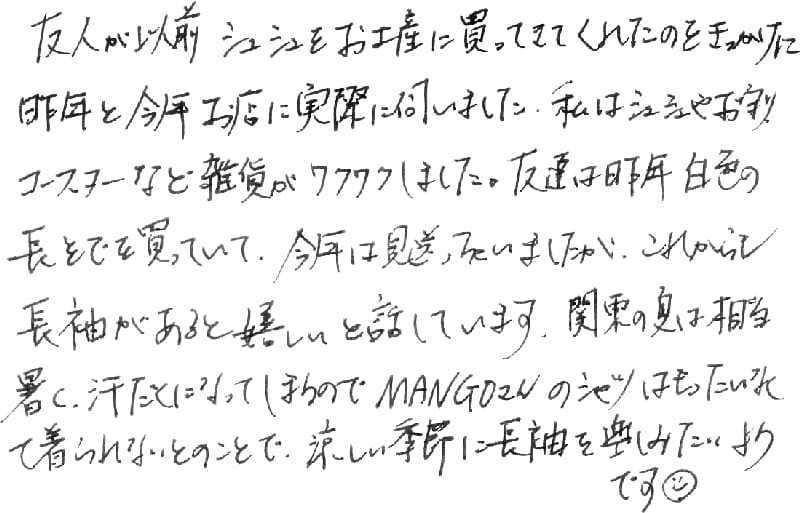 友人が以前 シュシュをお土産に買ってきてくれたのをきっかけに
昨年と今年お店に実際に伺いました。私はシュシュやお守り
コースターなど雑貨がワクワクしました。友達は昨年白色の
長そでを買っていて、今年は見送っていましたが、これからも
長袖があると嬉しいと話しています。関東の夏は相当
暑く、汗だくになってしまうので MANGO2Nのシャツはもったいなく
て着られないとのことで、涼しい季節に長袖を楽しみたいより
です☺